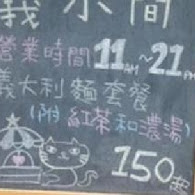 我 小間
營業時間 11AM~21PM
義大利麵套餐
(附紅茶和濃湯)
150起